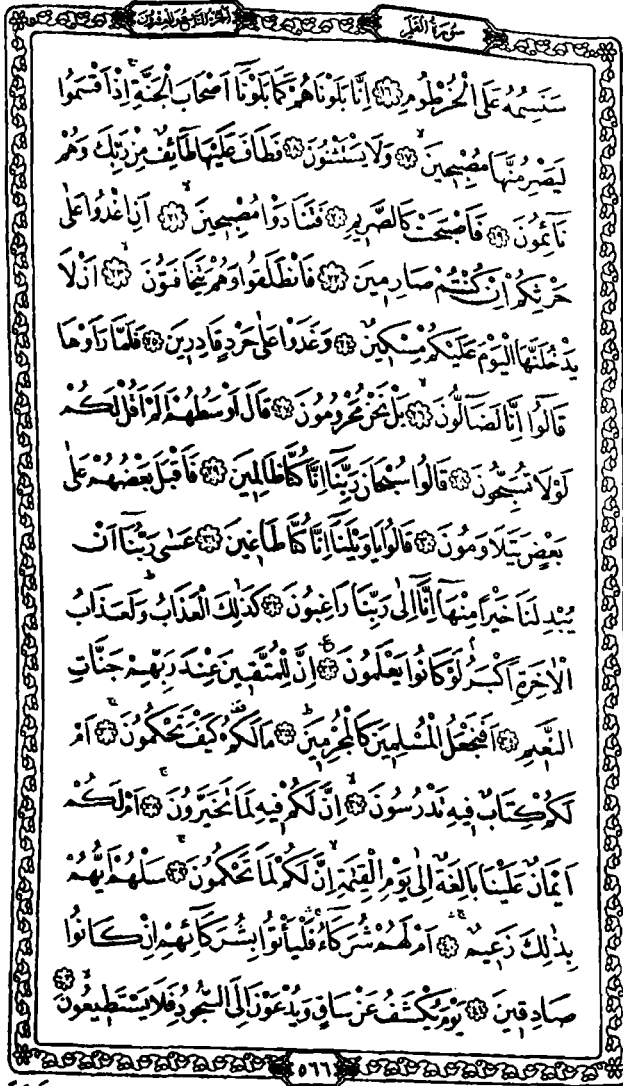 سُورَةُ الْقَلَمِ
اَلْجُزْءُ التَّاسِعُ وَالْعِشْرُونَ
سَنَسِمُهُ عَلَى الْخُرْطُومِ ﴿١٦﴾ اِنَّا بَلَوْنَاهُمْ كَمَا بَلَوْنَٓا اَصْحَابَ الْجَنَّةِۚ اِذْ اَقْسَمُوا
لَيَصْرِمُنَّهَا مُصْبِحِينَۙ ﴿١٧﴾ وَلَا يَسْتَثْنُونَ ﴿١٨﴾ فَطَافَ عَلَيْهَا طَٓائِفٌ مِنْ رَبِّكَ وَهُمْ
نَٓائِمُونَ ﴿١٩﴾ فَاَصْبَحَتْ كَالصَّرِيمِۙ ﴿٢٠﴾ فَتَنَادَوْا مُصْبِحِينَۙ ﴿٢١﴾ اَنِ اغْدُوا عَلٰى
حَرْثِكُمْ اِنْ كُنْتُمْ صَارِمِينَ ﴿٢٢﴾ فَانْطَلَقُوا وَهُمْ يَتَخَافَتُونَۙ ﴿٢٣﴾ اَنْ لَا
يَدْخُلَنَّهَا الْيَوْمَ عَلَيْكُمْ مِسْكِينٌ ﴿٢٤﴾ وَغَدَوْا عَلٰى حَرْدٍ قَادِرِينَ ﴿٢٥﴾ فَلَمَّا رَاَوْهَا
قَالُٓوا اِنَّا لَضَٓالُّونَۙ ﴿٢٦﴾ بَلْ نَحْنُ مَحْرُومُونَ ﴿٢٧﴾ قَالَ اَوْسَطُهُمْ اَلَمْ اَقُلْ لَكُمْ
لَوْلَا تُسَبِّحُونَ ﴿٢٨﴾ قَالُوا سُبْحَانَ رَبِّنَٓا اِنَّا كُنَّا ظَالِمِينَ ﴿٢٩﴾ فَاَقْبَلَ بَعْضُهُمْ عَلٰى
بَعْضٍ يَتَلَاوَمُونَ ﴿٣٠﴾ قَالُوا يَا وَيْلَنَٓا اِنَّا كُنَّا طَاغِينَ ﴿٣١﴾ عَسٰى رَبُّنَٓا اَنْ
يُبْدِلَنَا خَيْرًا مِنْهَٓا اِنَّٓا اِلٰى رَبِّنَا رَاغِبُونَ ﴿٣٢﴾ كَذٰلِكَ الْعَذَابُۜ وَلَعَذَابُ
الْاٰخِرَةِ اَكْبَرُۢ لَوْ كَانُوا يَعْلَمُونَ ﴿٣٣﴾ اِنَّ لِلْمُتَّقِينَ عِنْدَ رَبِّهِمْ جَنَّاتِ
النَّعِيمِ ﴿٣٤﴾ اَفَنَجْعَلُ الْمُسْلِمِينَ كَالْمُجْرِمِينَۜ ﴿٣٥﴾ مَا لَكُمْ۠ كَيْفَ تَحْكُمُونَۚ ﴿٣٦﴾ اَمْ
لَكُمْ كِتَابٌ فِيهِ تَدْرُسُونَۙ ﴿٣٧﴾ اِنَّ لَكُمْ فِيهِ لَمَا تَخَيَّرُونَۚ ﴿٣٨﴾ اَمْ لَكُمْ
اَيْمَانٌ عَلَيْنَا بَالِغَةٌ اِلٰى يَوْمِ الْقِيٰمَةِۙ اِنَّ لَكُمْ لَمَا تَحْكُمُونَۚ ﴿٣٩﴾ سَلْهُمْ اَيُّهُمْ
بِذٰلِكَ زَعِيمٌۚۛ ﴿٤٠﴾ اَمْ لَهُمْ شُرَكَٓاءُۚۛ فَلْيَأْتُوا بِشُرَكَٓائِهِمْ اِنْ كَانُوا
صَادِقِينَ ﴿٤١﴾ يَوْمَ يُكْشَفُ عَنْ سَاقٍ وَيُدْعَوْنَ اِلَى السُّجُودِ فَلَا يَسْتَطِيعُونَۙ ﴿٤٢﴾
٥٦٦